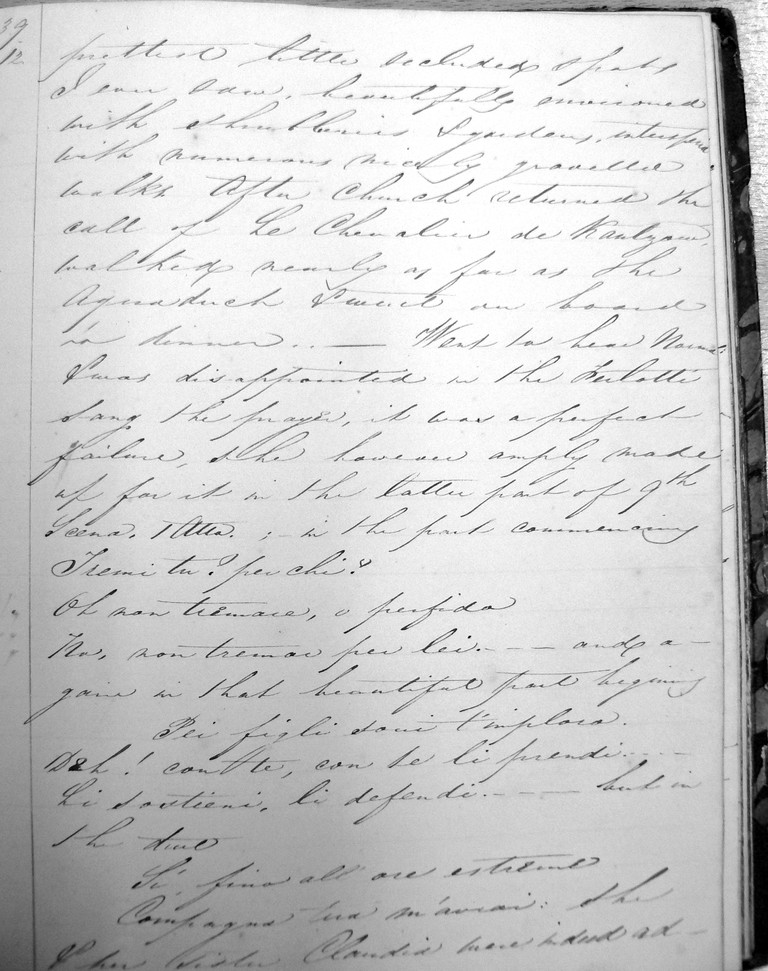 39
12
prettiest little secluded spots
I ever saw, beautifully environed
with shrubberies & gardens, interspersed
with numerous nicely gravelled
walks After Church returned the
call of Le Chevalier de
walked nearly as far as the
Aquaduck & went on board
to dinner .. — Went to hear Norma
& was disappointed in the Ferlotti
sang the prayer, it was a perfect
failure, she however amply made
up for it in the latter part of 9th
Scena. 1 Atto. ; - in the part commencing
Tremi tu? per chi?
Oh non tremare, o perfido
No, non tremar per lei. - - - and a-
gain in that beautiful part begining
Pei figli suoi t'imploro.
Deh! con te, con te li prendi ....
Li sostieni, li defendi. - - - but in
the duet
Si, fino all' ore estreme
Compagna tua m'avrai: she
& her sister Claudia were indeed ad-